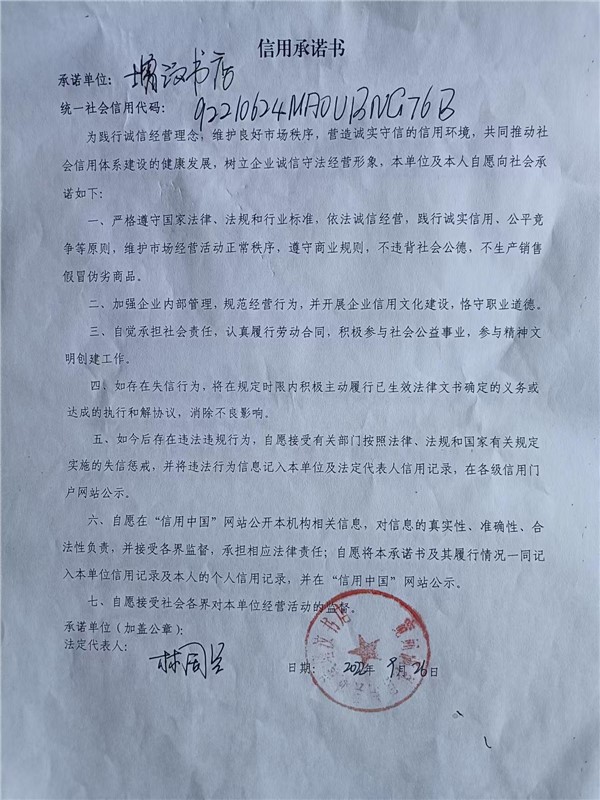 信用承诺书
承诺单位：增汉书店
统一社会信用代码：92210624MA0UBNG76B
为践行诚信经营理念，维护良好市场秩序，营造诚实守信的信用环境，共同推动社
会信用体系建设的健康发展，树立企业诚信守法经营形象，本单位及本人自愿向社会承
诺如下：
一、严格遵守国家法律、法规和行业标准，依法诚信经营，践行诚实信用、公平竞
争等原则，维护市场经营活动正常秩序，遵守商业规则，不违背社会公德，不生产销售
假冒伪劣商品。
二、加强企业内部管理，规范经营行为，并开展企业信用文化建设，恪守职业道德。
三、自觉承担社会责任，认真履行劳动合同，积极参与社会公益事业，参与精神文
明创建工作。
四、如存在失信行为，将在规定时限内积极主动履行已生效法律文书确定的义务或
达成的执行和解协议，消除不良影响。
五、如今后存在违法违规行为，自愿接受有关部门按照法律、法规和国家有关规定
实施的失信惩戒，并将违法行为信息记入本单位及法定代表人信用记录，在各级信用门
户网站公示。
六、自愿在“信用中国”网站公开本机构相关信息，对信息的真实性、准确性、合
法性负责，并接受各界监督，承担相应法律责任；自愿将本承诺书及其履行情况一同记
入本单位信用记录及本人的个人信用记录，并在“信用中国”网站公示。
七、自愿接受社会各界对本单位经营活动的监督
承诺单位（加盖公章）：
法定代表人：
日期：2022年9月26日